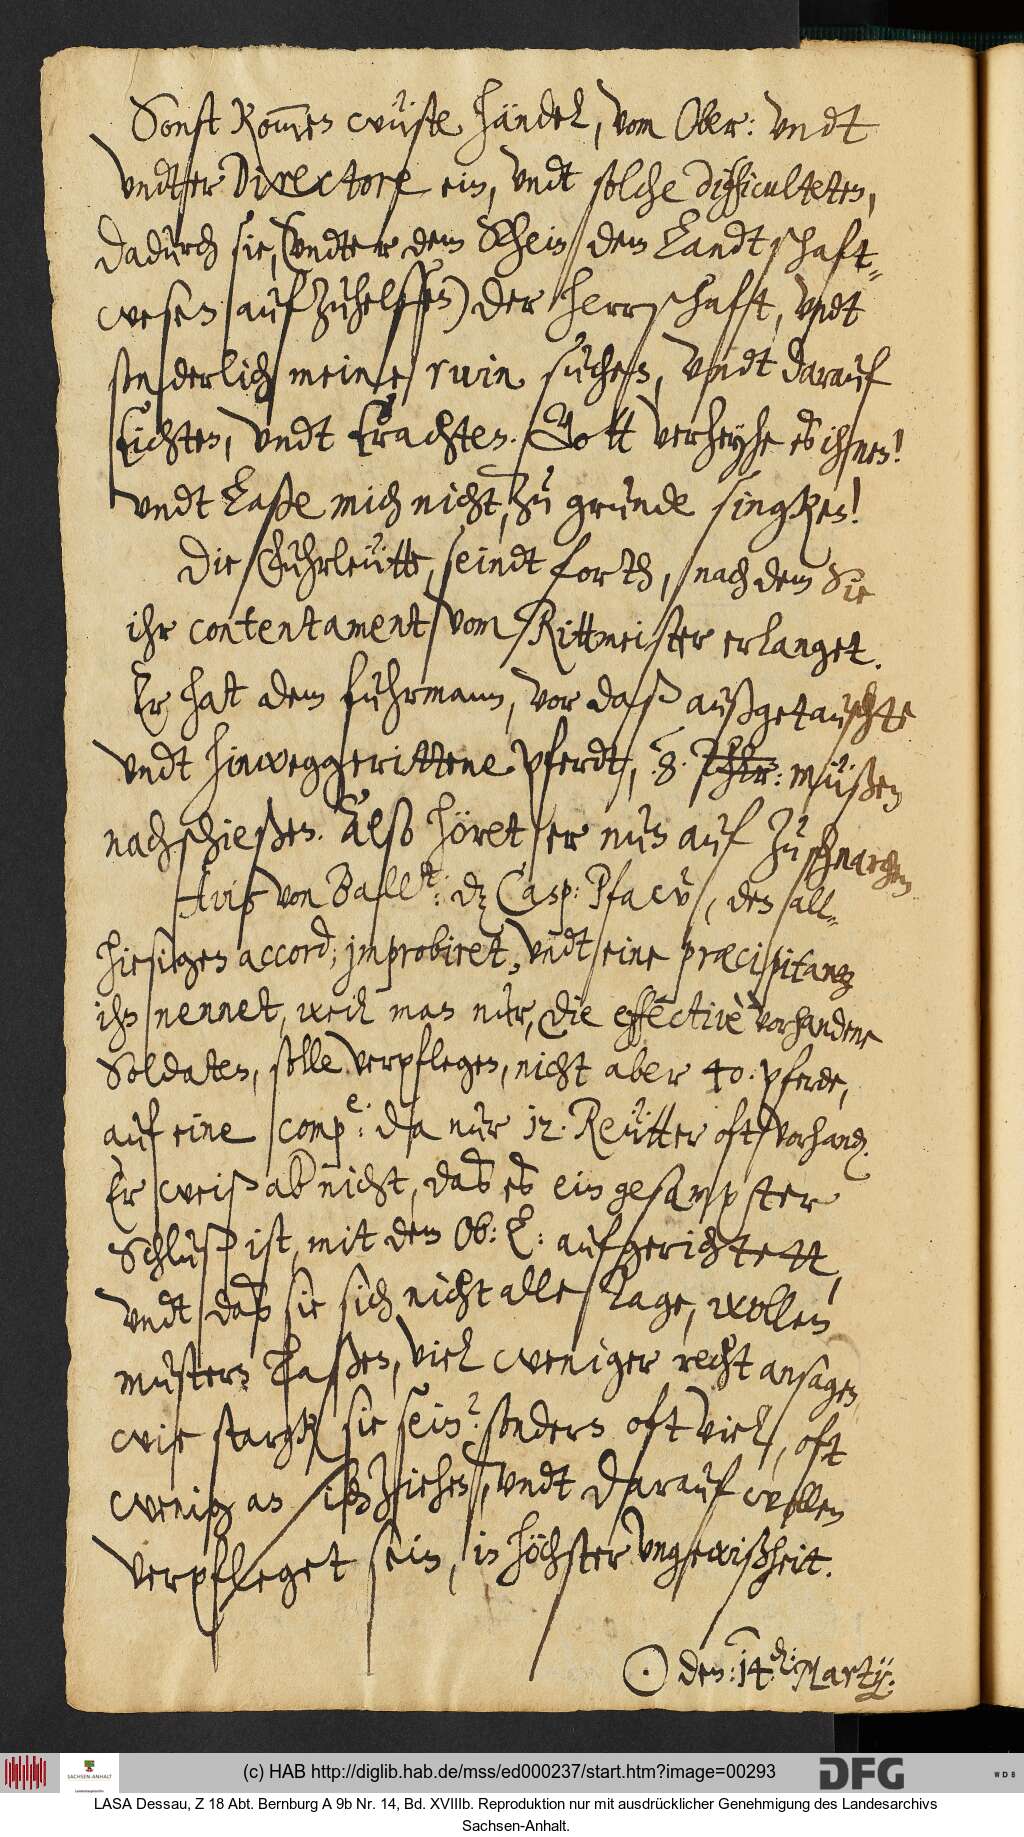 Sonst kom̅en wüste händel, vom Ober: vndt
vndter Directore ein, vndt solche difficulteten,
dadurch sie, (vndter dem Schein dem Landtschaft-
wesen aufzuhelffen) der herrschafft, vndt
sonderlich meine ruin suchen, vndt darauf
tichten, vndt trachten. Gott verzeyhe es ihnen!
vndt laße mich nicht, zu grunde singken!
Die fuhrleütte, seindt forth, nach dem Sie
ihr contentament vom Rittmeister erlanget.
Er hat dem fuhrmann, vor daß außgetauschte
vndt hinweggerittene pferdt, 8. Thlr: müßen
nachschießen. Also höret er nun auf zu schnarchen
Avis von Ballst: dz Casp: Pfaew, den all-
hiesigen accord; jmprobiret, vndt eine præcipitantz
ihn nennet, weil man nur, die effectivè vorhandene
Soldaten, solle verpflegen, nicht aber 40. pferde,
auf eine comp.e: da nur 12. Reütter oft vorhanden.
Er weiß aber nicht, daß es ein gesampter
Schluß ist, mit dem Ob: L: aufgerichtett,
vndt daß sie sich nicht alle Tage, wollen
mustern laßen, viel weniger recht ansagen
wie stargk sie sein? sondern oft viel, oft
wenig an sich ziehen, vndt darauf wollen
verpfleget sein, in höchster vngewißheit.
☉ den: 14. Martzij:
(c) HAB http://diglib.hab.de/mss/ed000237/start.htm?image=00293
SACHSEN-ANHALT
DFG
WDB
LASA Dessau, Z 18 Abt. Bernburg A 9b Nr. 14, Bd. XVIIIb. Reproduktion nur mit ausdrücklicher Genehmigung des Landesarchivs
Sachsen-Anhalt.